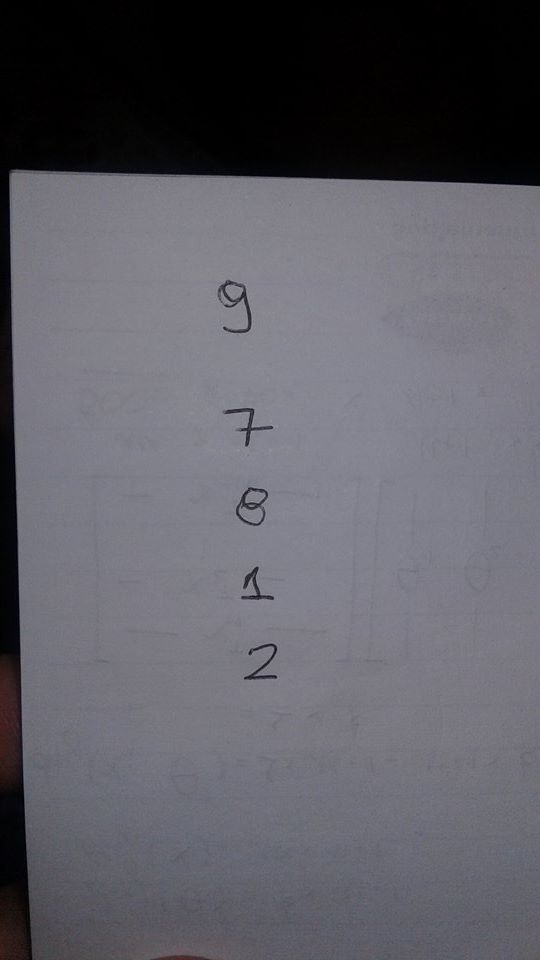 9
7
8
1
2